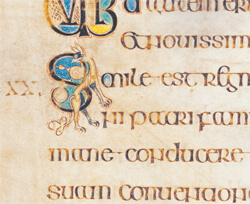 autem er
et nouissim
XX. Simile · est · regn
ini patri fami
mane · conducere ·
suam conuention